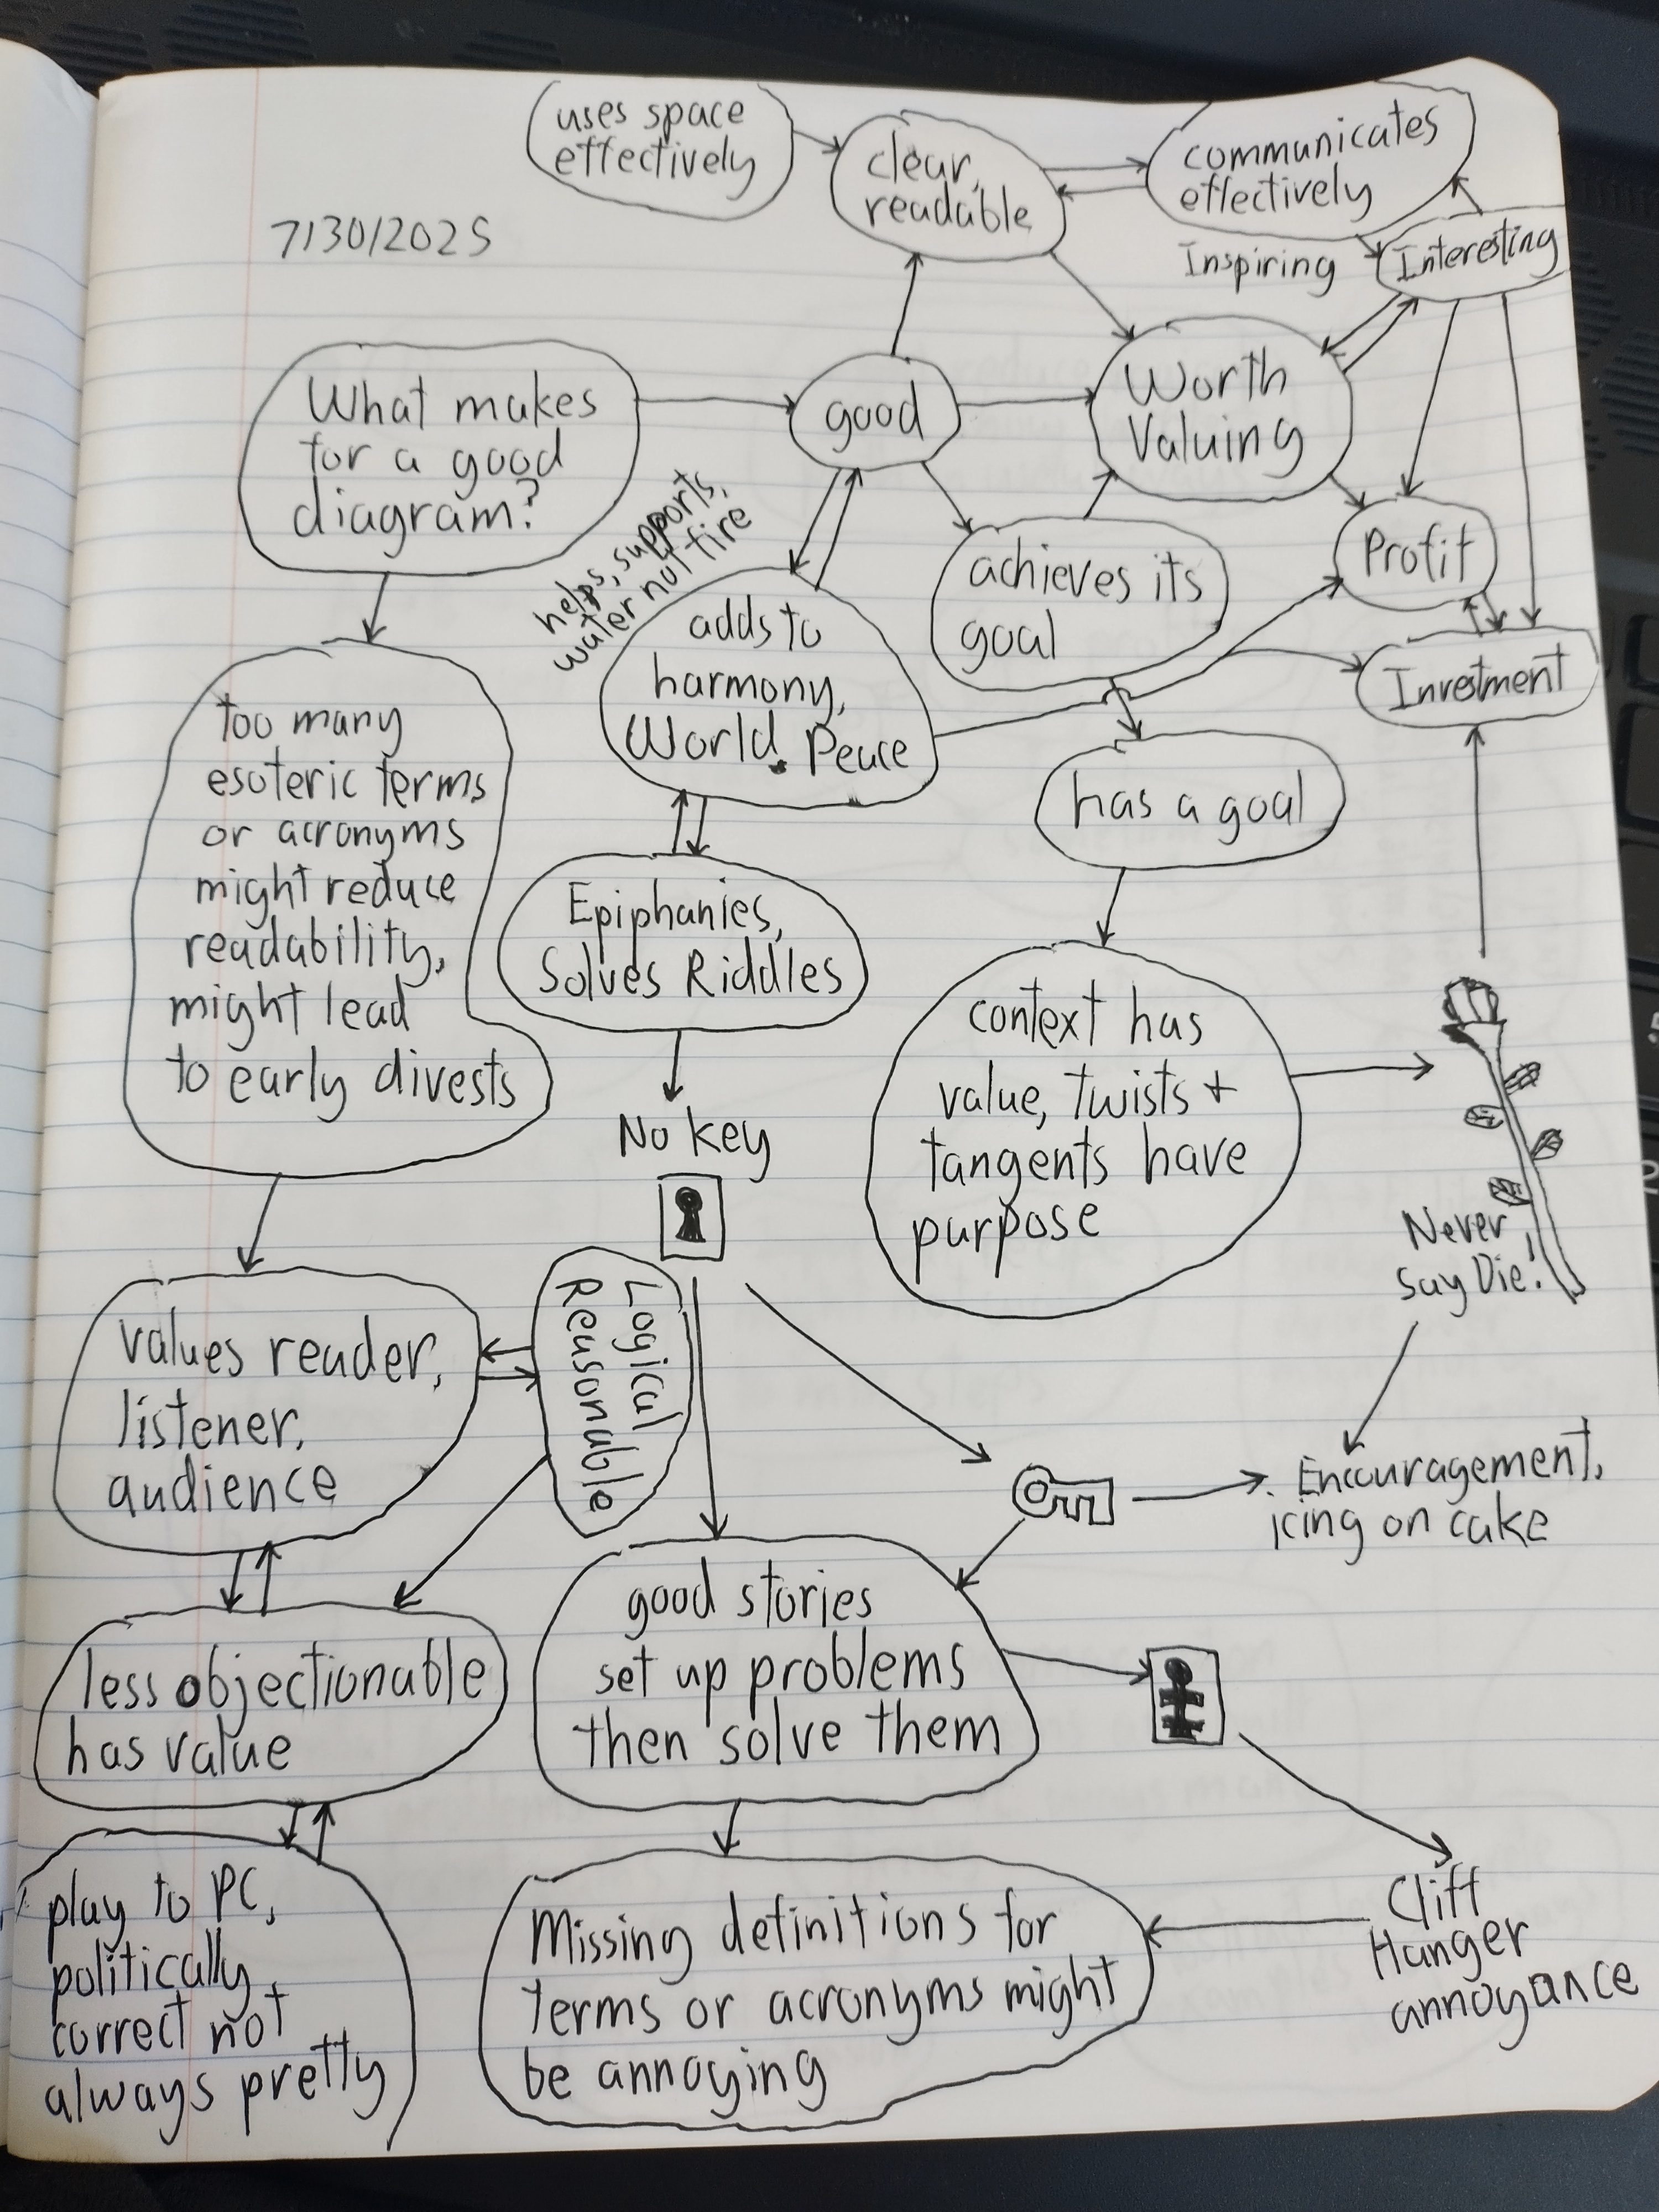 uses space
effectively
clear,
readable
communicates
effectively
7/30/2025
Inspiring
Interesting
What makes
for a good
diagram?
good
Worth
Valuing
helps, supports,
water not fire
achieves its
goal
Profit
adds to
harmony,
World. Peace
Investment
too many
esoteric terms
or acronyms
might reduce
readability,
might lead
to early divests
has a goal
Epiphanies,
Solves Riddles
context has
value, twists +
tangents have
purpose
No key
Never
Say Die!
Logical
Reasonable
values reader,
listener,
audience
Encouragement,
icing on cake
good stories
set up problems
then solve them
less objectionable
has value
play to PC,
politically
correct not
always pretty
Missing definitions for
terms or acronyms might
be annoying
Cliff
Hanger
annoyance